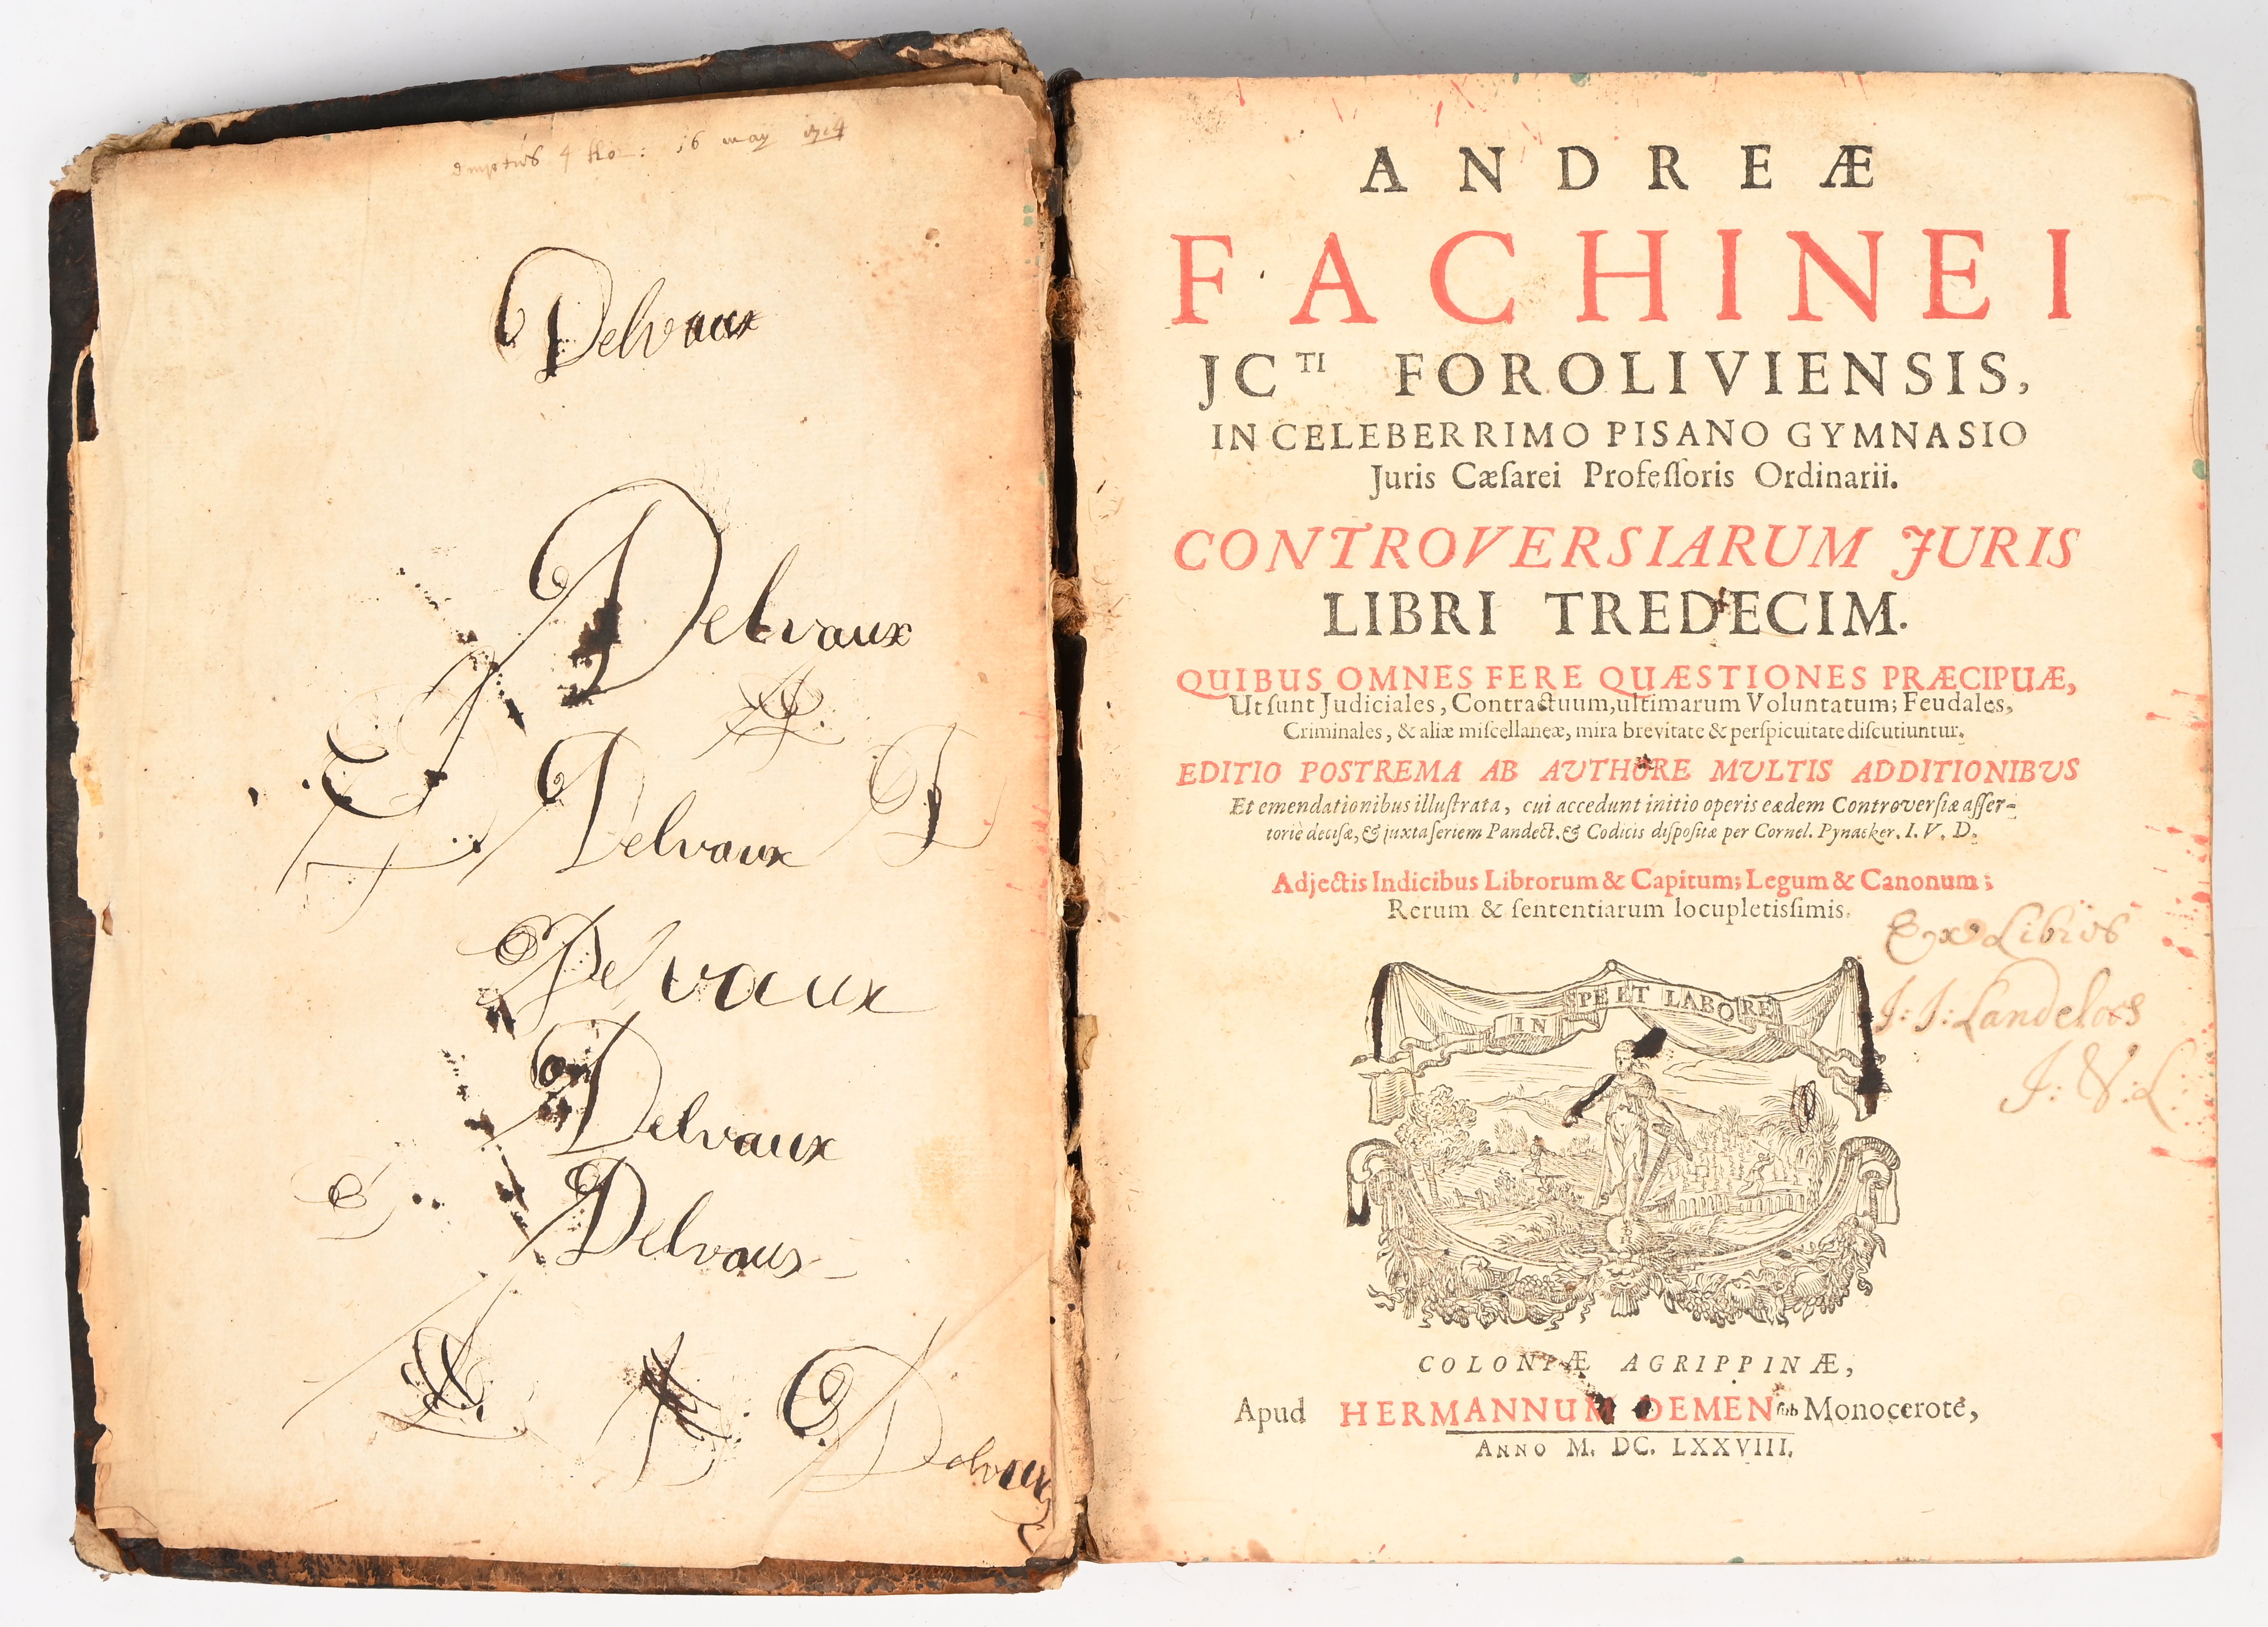 emptus 4 flor: 16 may 1714
Delvaux
Delvaux
Delvaux
Delvaux
Delvaux
Delvaux
Delvaux
ANDREÆ
FACHINEI
JC TI FOROLIVIENSIS,
IN CELEBERRIMO PISANO GYMNASIO
Juris Cæſarei Profeſſoris Ordinarii.
CONTROVERSIARUM JURIS
LIBRI TREDECIM.
QUIBUS OMNES FERE QUÆSTIONES PRÆCIPUÆ,
Ut ſunt Judiciales, Contractuum, ultimarum Voluntatum; Feudales,
Criminales, & aliæ miſcellaneæ, mira brevitate & perſpicuitate diſcutiuntur.
EDITIO POSTREMA AB AUTHORE MULTIS ADDITIONIBUS
Et emendationibus illuſtrata, cui accedunt initio operis eædem Controverſiæ aſſer-
toriè deciſæ, & juxta ſeriem Pandect. & Codicis diſpoſitæ per Cornel. Pynacker. I. V. D.
Adjectis Indicibus Librorum & Capitum; Legum & Canonum;
Rerum & ſententiarum locupletiſſimis.
Ex Libris
J: J: Landeloos
J: V: L.
IN SPE ET LABORE
COLONIÆ AGRIPPINÆ,
Apud HERMANNUM DEMEN ſub Monocerote,
ANNO M. DC. LXXVIII.